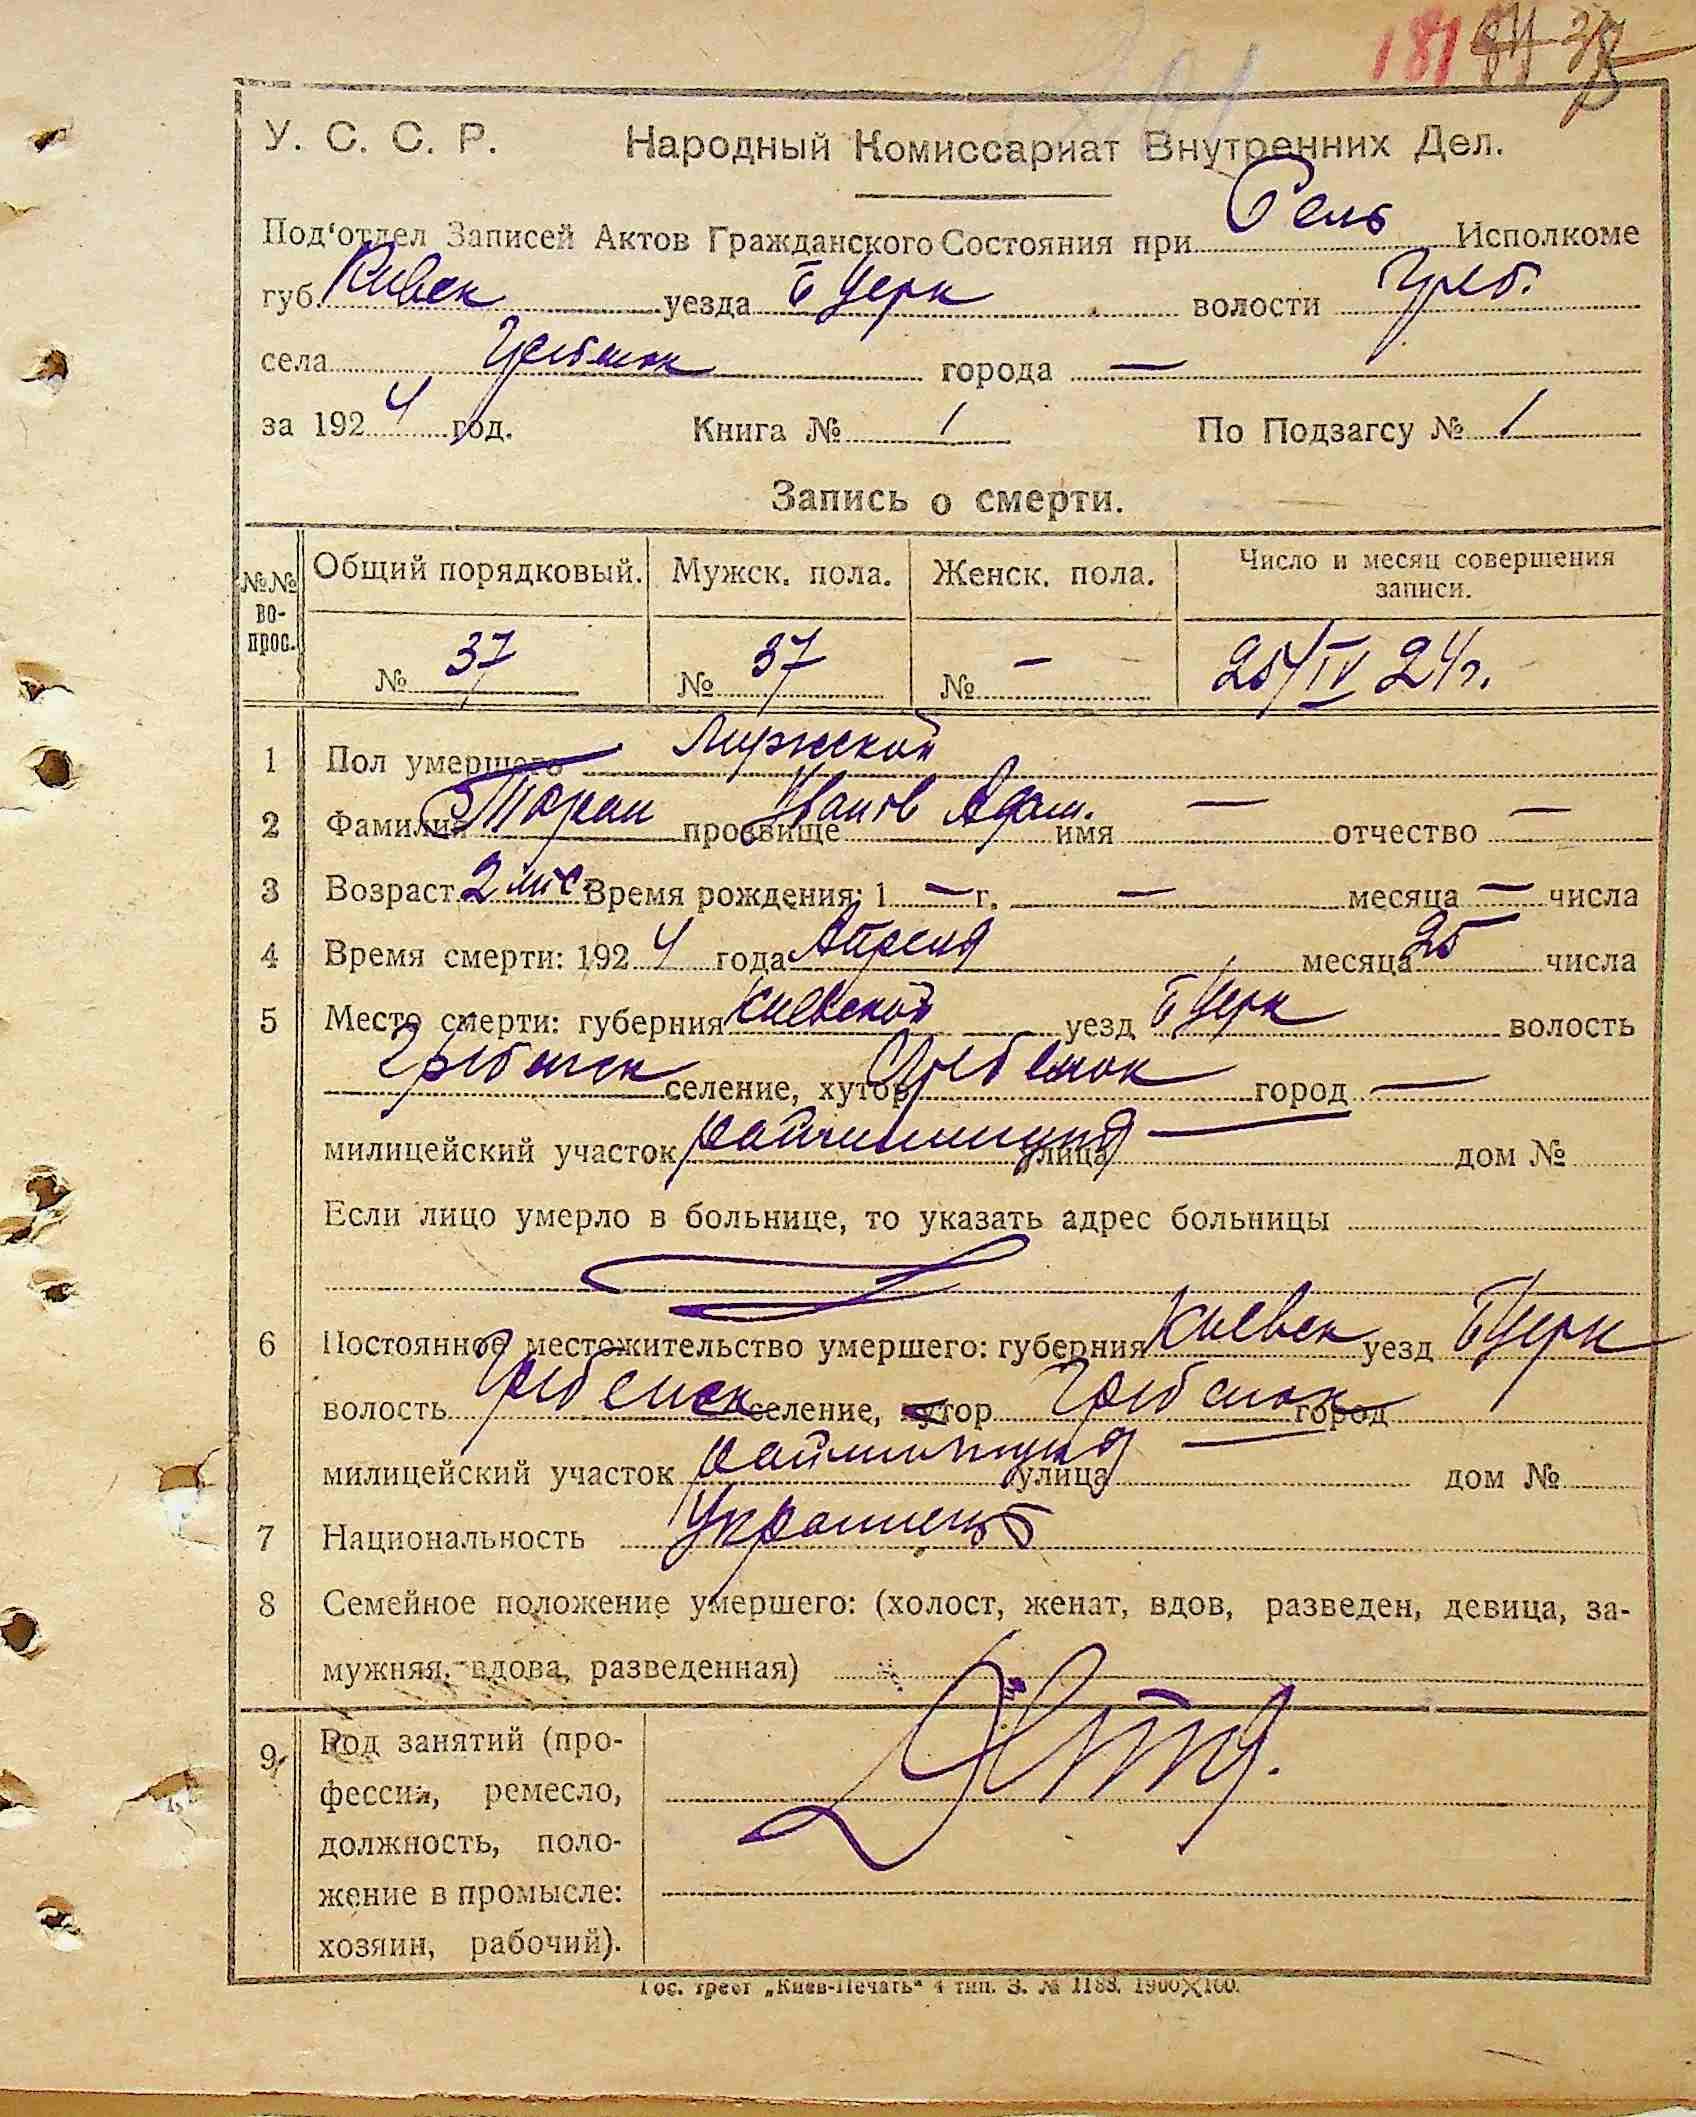 181 37 38
У. С. С. Р. Народный Комиссариат Внутренних Дел.
Под'отдел Записей Актов Гражданского Состояния при Сель Исполкоме
губ. Киевск уезда Б Церк волости Греб.
села Гребенок города —
за 1924 год. Книга № 1 По Подзагсу № 1
Запись о смерти.
№№ во-прос. Общий порядковый. Мужск. пола. Женск. пола. Число и месяц совершения
записи.
№ 37 № 37 № — 25/IV 24 г.
1 Пол умершего Мужской
2 Фамилия Таран прозвище Иванов Адам. имя — отчество —
3 Возраст 2 мес. Время рождения: 1 — г. — месяца — числа
4 Время смерти: 1924 года Апреля месяца 25 числа
5 Место смерти: губерния Киевской уезд Б Церк волость
Гребенск селение, хутор Гребенок город —
милицейский участок улица — дом №
Если лицо умерло в больнице, то указать адрес больницы
6 Постоянное местожительство умершего: губерния Киевск уезд Б Церк
волость Гребенск селение, хутор Гребенок город
милицейский участок улица — дом №
7 Национальность Украинець
8 Семейное положение умершего: (холост, женат, вдов, разведен, девица, за-
мужняя, вдова, разведенная)
9 Род занятий (про-
фессия, ремесло,
должность, поло-
жение в промысле:
хозяин, рабочий).
Дитя.
Гос. трест „Киев-Печать“ 4 тип. З. № 1183. 1900×100.